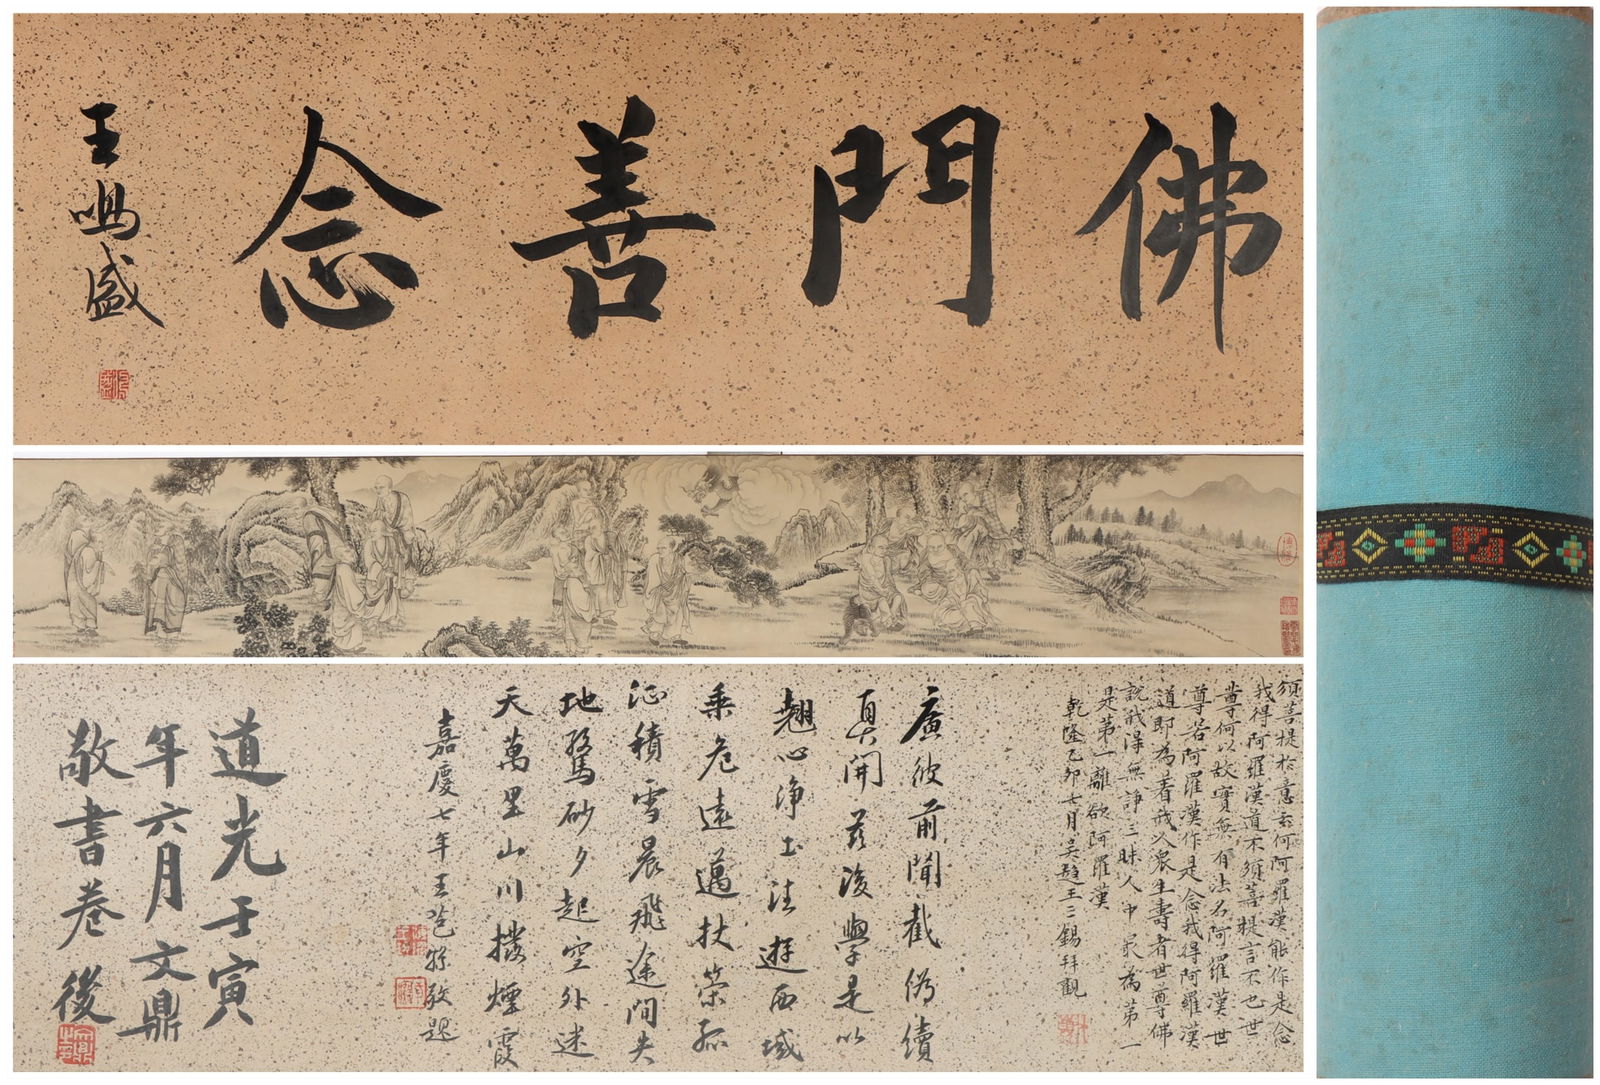 佛門善念
王鳴盛
須菩提於意云何阿羅漢能作是念
我得阿羅漢道不須菩提言不也世
尊何以故實無有法名阿羅漢世
尊若阿羅漢作是念我得阿羅漢
道即為著我人衆生壽者世尊佛
說我得無諍三昧人中最為第一
是第一離欲阿羅漢
乾隆乙卯七月吳趨王三錫拜觀
廣彼前聞截偽續
真開茲後學是以
翹心淨土法遊西域
乘危遠邁杖策孤
征積雪晨飛途間失
地驚砂夕起空外迷
天萬里山川撥煙霞
嘉慶七年王芑孫敬題
道光壬寅
年六月文鼎
敬書卷後